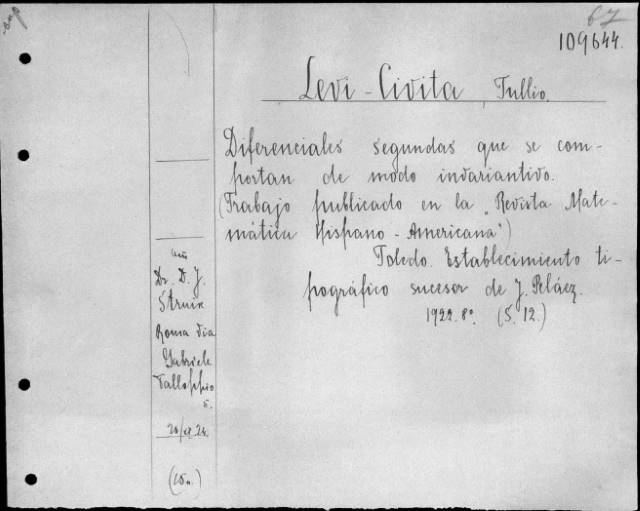 67
109644.
Levi-Civita, Tullio.
Diferenciales segundas que se com-
portan de modo invariantivo.
(Trabajo publicado en la „Revista Mate-
mática Hispano-Americana")
Toledo. Establecimiento ti-
pográfico sucesor de J. Peláez.
1922. 8°. (S. 12.)
Dr. D. J.
Struik
Roma via
Gabriele
Falloppio
5.